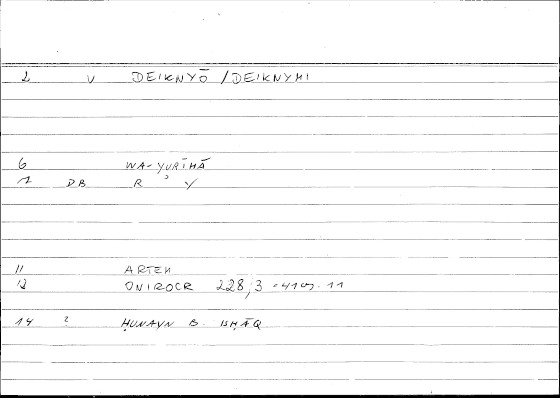 2 V DEIKNYŌ / DEIKNYMI
6 WA-YURĪHĀ
7 DB R ʾ Y
11 ARTEM
12 ONIROCR 228,3 - 419.11
14 ? ḤUNAYN B. ISḤĀQ